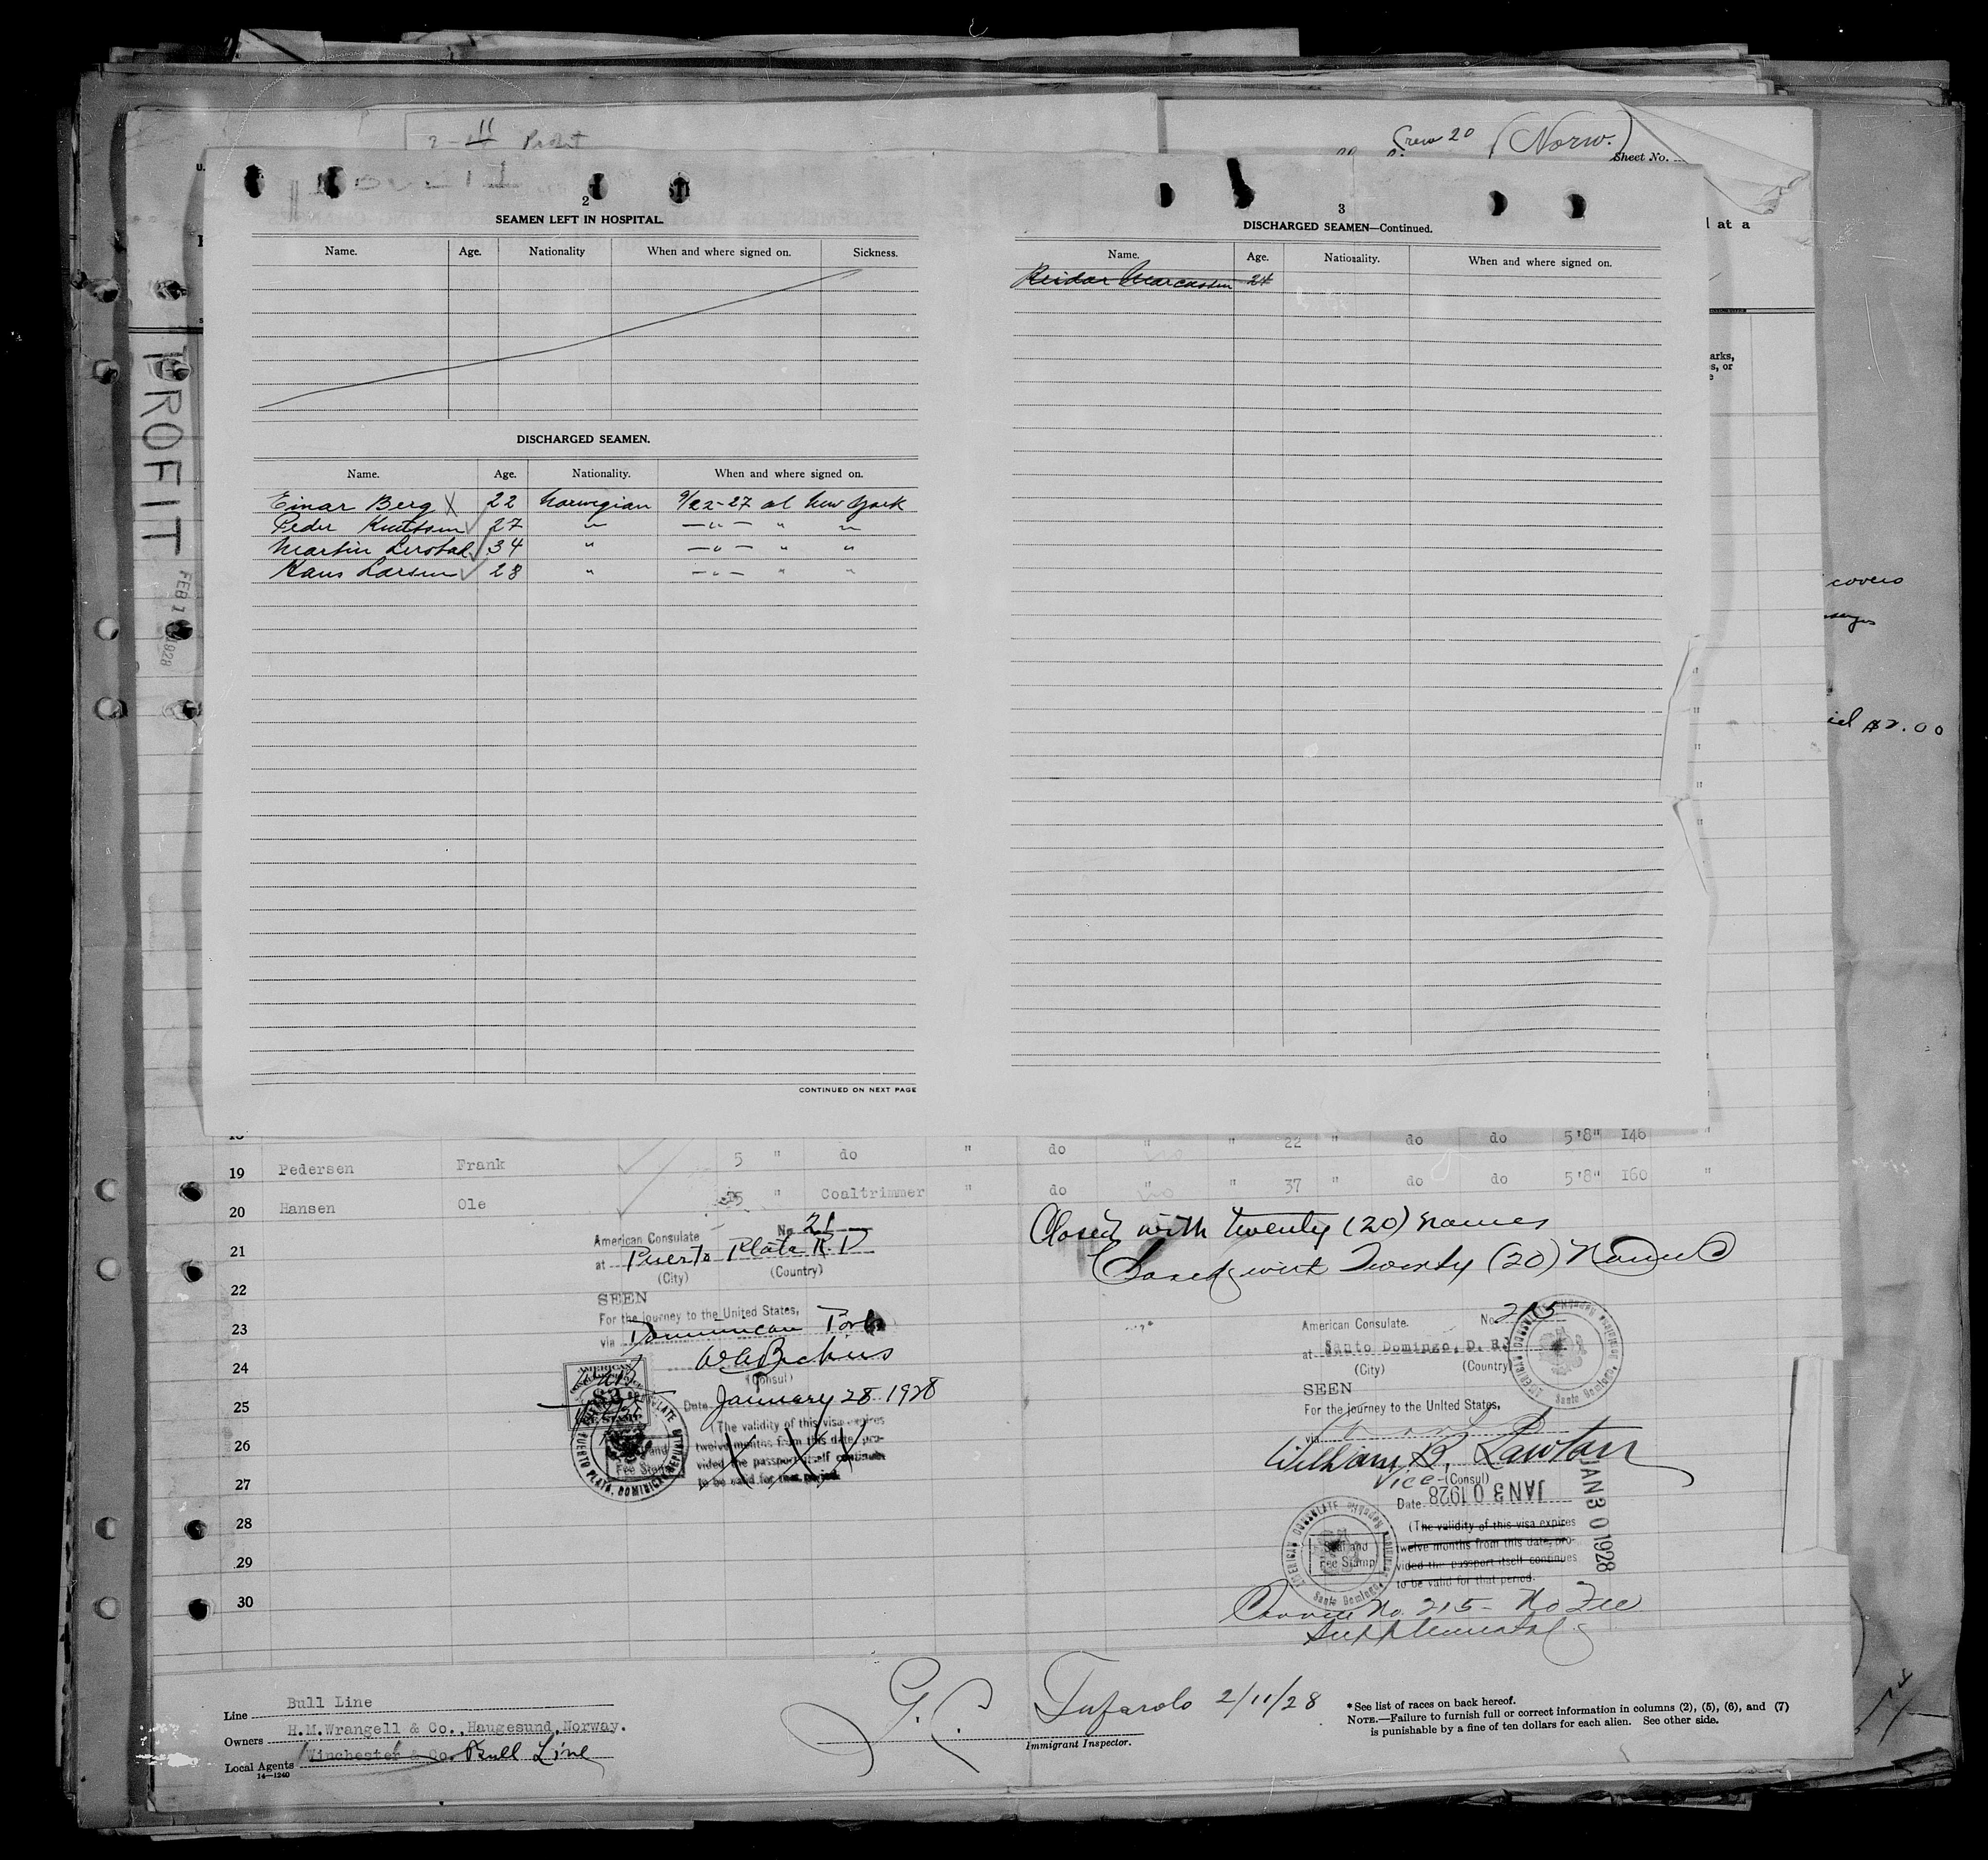 2-11 Profit
Crew 20 (Norw.)
Sheet No.
at a
PROFIT
FEB 1 1928
2
SEAMEN LEFT IN HOSPITAL.
Name. Age. Nationality When and where signed on. Sickness.
DISCHARGED SEAMEN.
Name. Age. Nationality. When and where signed on.
Einar Berg X 22 Norwegian 9/22-27 at New York
Peder Knutsen ✓ 27 " — " — " "
Martin ✓ 34 " — " — " "
Hans Larsen ✓ 28 " — " — " "
CONTINUED ON NEXT PAGE
3
DISCHARGED SEAMEN—Continued.
Name. Age. Nationality. When and where signed on.
Reidar Marcussen 24
arks,
s, or
e
covers
$2.00
18 5 " do " do " " 22 " do do 5'8" 146 "
19 Pedersen Frank
15 " Coaltrimmer " do no " 37 " do do 5'8" 160 "
20 Hansen Ole
21
22
23
24
25
26
27
28
29
30
Closed with twenty (20) names
Closed with Twenty (20) Names
American Consulate No 21
at Puerto Plata R.D
(City) (Country)
SEEN
For the journey to the United States,
via Dominican Ports
(Consul)
Date January 28 1928
(The validity of this visa expires
twelve months from this date, pro-
vided the passport itself continues
to be valid for that period.
Seal and
Fee Stamp
PUERTO PLATA, DOMINICAN REPUBLIC
American Consulate. No 215
at Santo Domingo, D. R.
(City) (Country)
SEEN
For the journey to the United States,
via
William B. Lawton
Vice-(Consul)
Date JAN 30 1928
JAN 30 1928
(The validity of this visa expires
twelve months from this date, pro-
vided the passport itself continues
to be valid for that period.
Seal and
Fee Stamp
AMERICAN CONSULATE Santo Domingo, Dominican Republic
No. 215 - No Fee
Supplemental
Line Bull Line
Owners H.M.Wrangell & Co., Haugesund, Norway.
Local Agents Winchester & Co. Bull Line
14—1240
G. C. Tufarolo 2/11/28
Immigrant Inspector.
* See list of races on back hereof.
NOTE.—Failure to furnish full or correct information in columns (2), (5), (6), and (7)
is punishable by a fine of ten dollars for each alien. See other side.